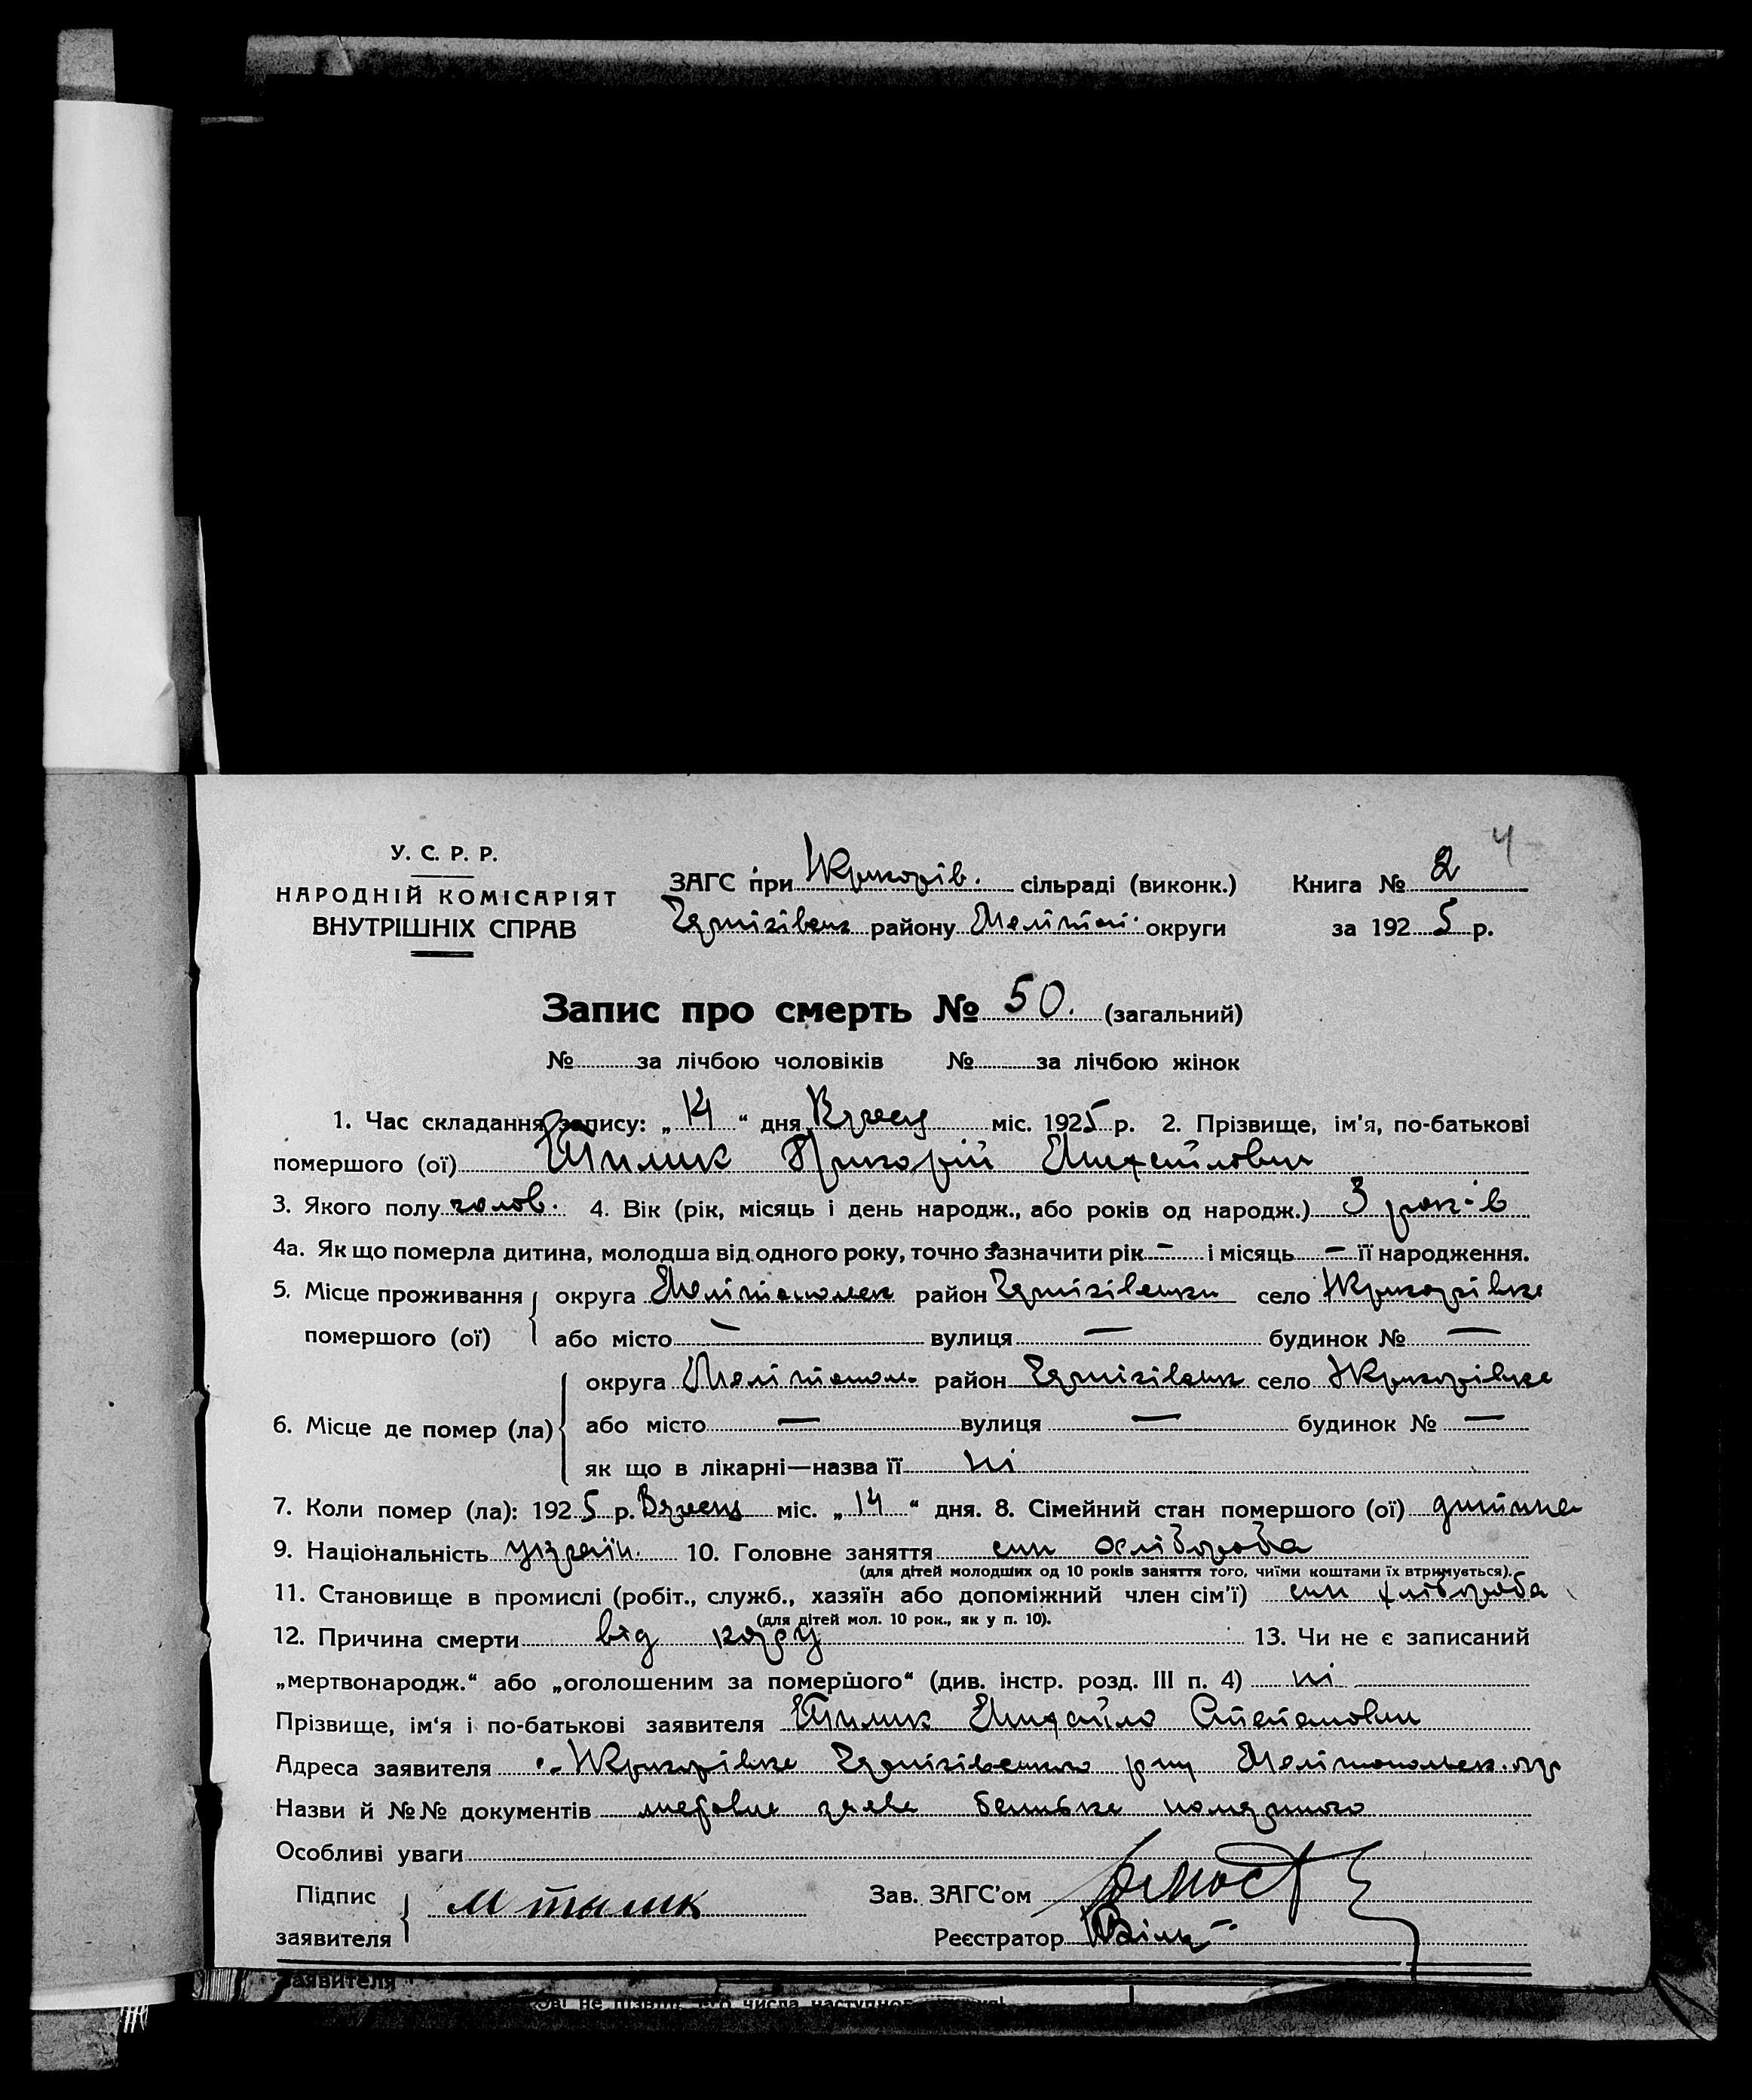 У. С. Р. Р.
НАРОДНІЙ КОМІСАРІЯТ
ВНУТРІШНІХ СПРАВ
ЗАГС при сільраді (виконк.) Книга № 2 4
Чернігівськ району Меліто округи за 1925 р.
Запис про смерть № 50. (загальний)
№ за лічбою чоловіків № за лічбою жінок
1. Час складання запису: „14“ дня міс. 1925 р. 2. Прізвище, ім'я, по-батькові
помершого (ої) Григорій Михайлович
3. Якого полу чолов. 4. Вік (рік, місяць і день народж., або років од народж.) 3 років
4а. Як що померла дитина, молодша від одного року, точно зазначити рік – і місяць – її народження.
5. Місце проживання округа Мелітопольск район Чернігівськи село
помершого (ої) або місто — вулиця — будинок № —
округа Мелітопол. район Чернігівськ село
6. Місце де помер (ла) або місто — вулиця — будинок № —
як що в лікарні—назва її ні
7. Коли помер (ла): 1925 р. міс. „14“ дня. 8. Сімейний стан помершого (ої) дитина
9. Національність україн. 10. Головне заняття син хлібороба
(для дітей молодших од 10 років заняття того, чиїми коштами їх втримується).
11. Становище в промислі (робіт., служб., хазяїн або допоміжний член сім'ї) син хлібороба
(для дітей мол. 10 рок., як у п. 10).
12. Причина смерти від кору 13. Чи не є записаний
„мертвонародж.“ або „оголошеним за помершого“ (див. інстр. розд. III п. 4) ні
Прізвище, ім'я і по-батькові заявителя Михайло Степанович
Адреса заявителя Чернігівського р-ну Мелітопольск. окр
Назви й №№ документів заява батька
Особливі уваги
Підпис Зав. ЗАГС'ом
заявителя Реєстратор
заявителя